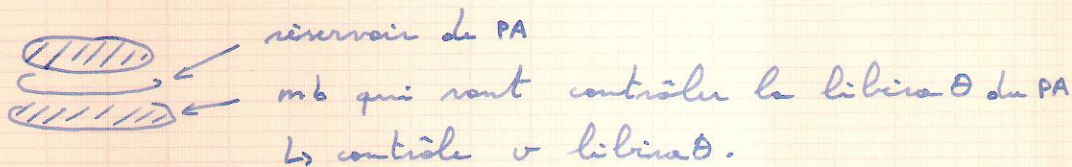 réservoir de PA
mb qui vont contrôler la libéraθ du PA
↳ contrôle v libéraθ.